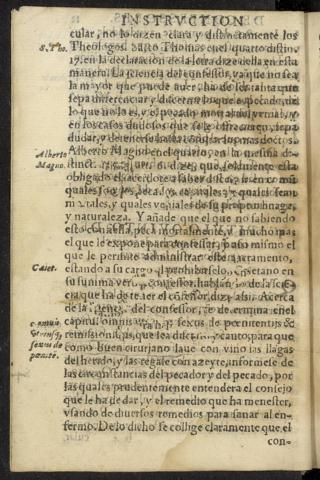 INSTRVCTION
cular, no lo dizen clara y distinctamente los
S. Tho. Theologos. Sacto Thomas en el quarto distin.
17. en la declaracion de la letra dize della en esta
manera. La sciencia del confessor, ya que no sea
la mayor que puede auer, ha de ser tanta que
sepa differenciar y discernir lo que es pecado, de
lo que no lo es, y el pecado mortal del venial, y
en los casos dudosos que se le offrecieren, sepa
dudar, y
Alberto Magno. Alberto Magno en el quarto, en la mesma
distinct. dize, que solamente esta
obligado el sacerdote a saber
quales son los pecados
mortales, y quales veniales de su propio linage,
y naturaleza. Y añade que el que no sabiendo
esto confiessa, peca mortalmente, y mucho mas
el que le expone para confessor, y a lo mismo el
que le permite administrar este sacramento,
Caiet. estando a su cargo el prohibirselo. Cayetano en
su summa verb. confessor, hablando de la scien
cia que ha de tener el confessor dize assi. Acerca
de la sciencia del confessor, se determina en el
capitul. omnis utriusque sexus de pœnitentijs &
remissionibus, que sea discreto y cauto, para que
como buen cirurjano laue con vino las llagas
del herido, y las regale con azeyte, informese de
las circunstancias del pecador y del pecado, por
las quales prudentemente entendera el consejo
que le ha de dar, y el remedio que ha menester,
vsando de diuersos remedios para sanar al en-
fermo. De lo dicho se collige claramente que el
con-